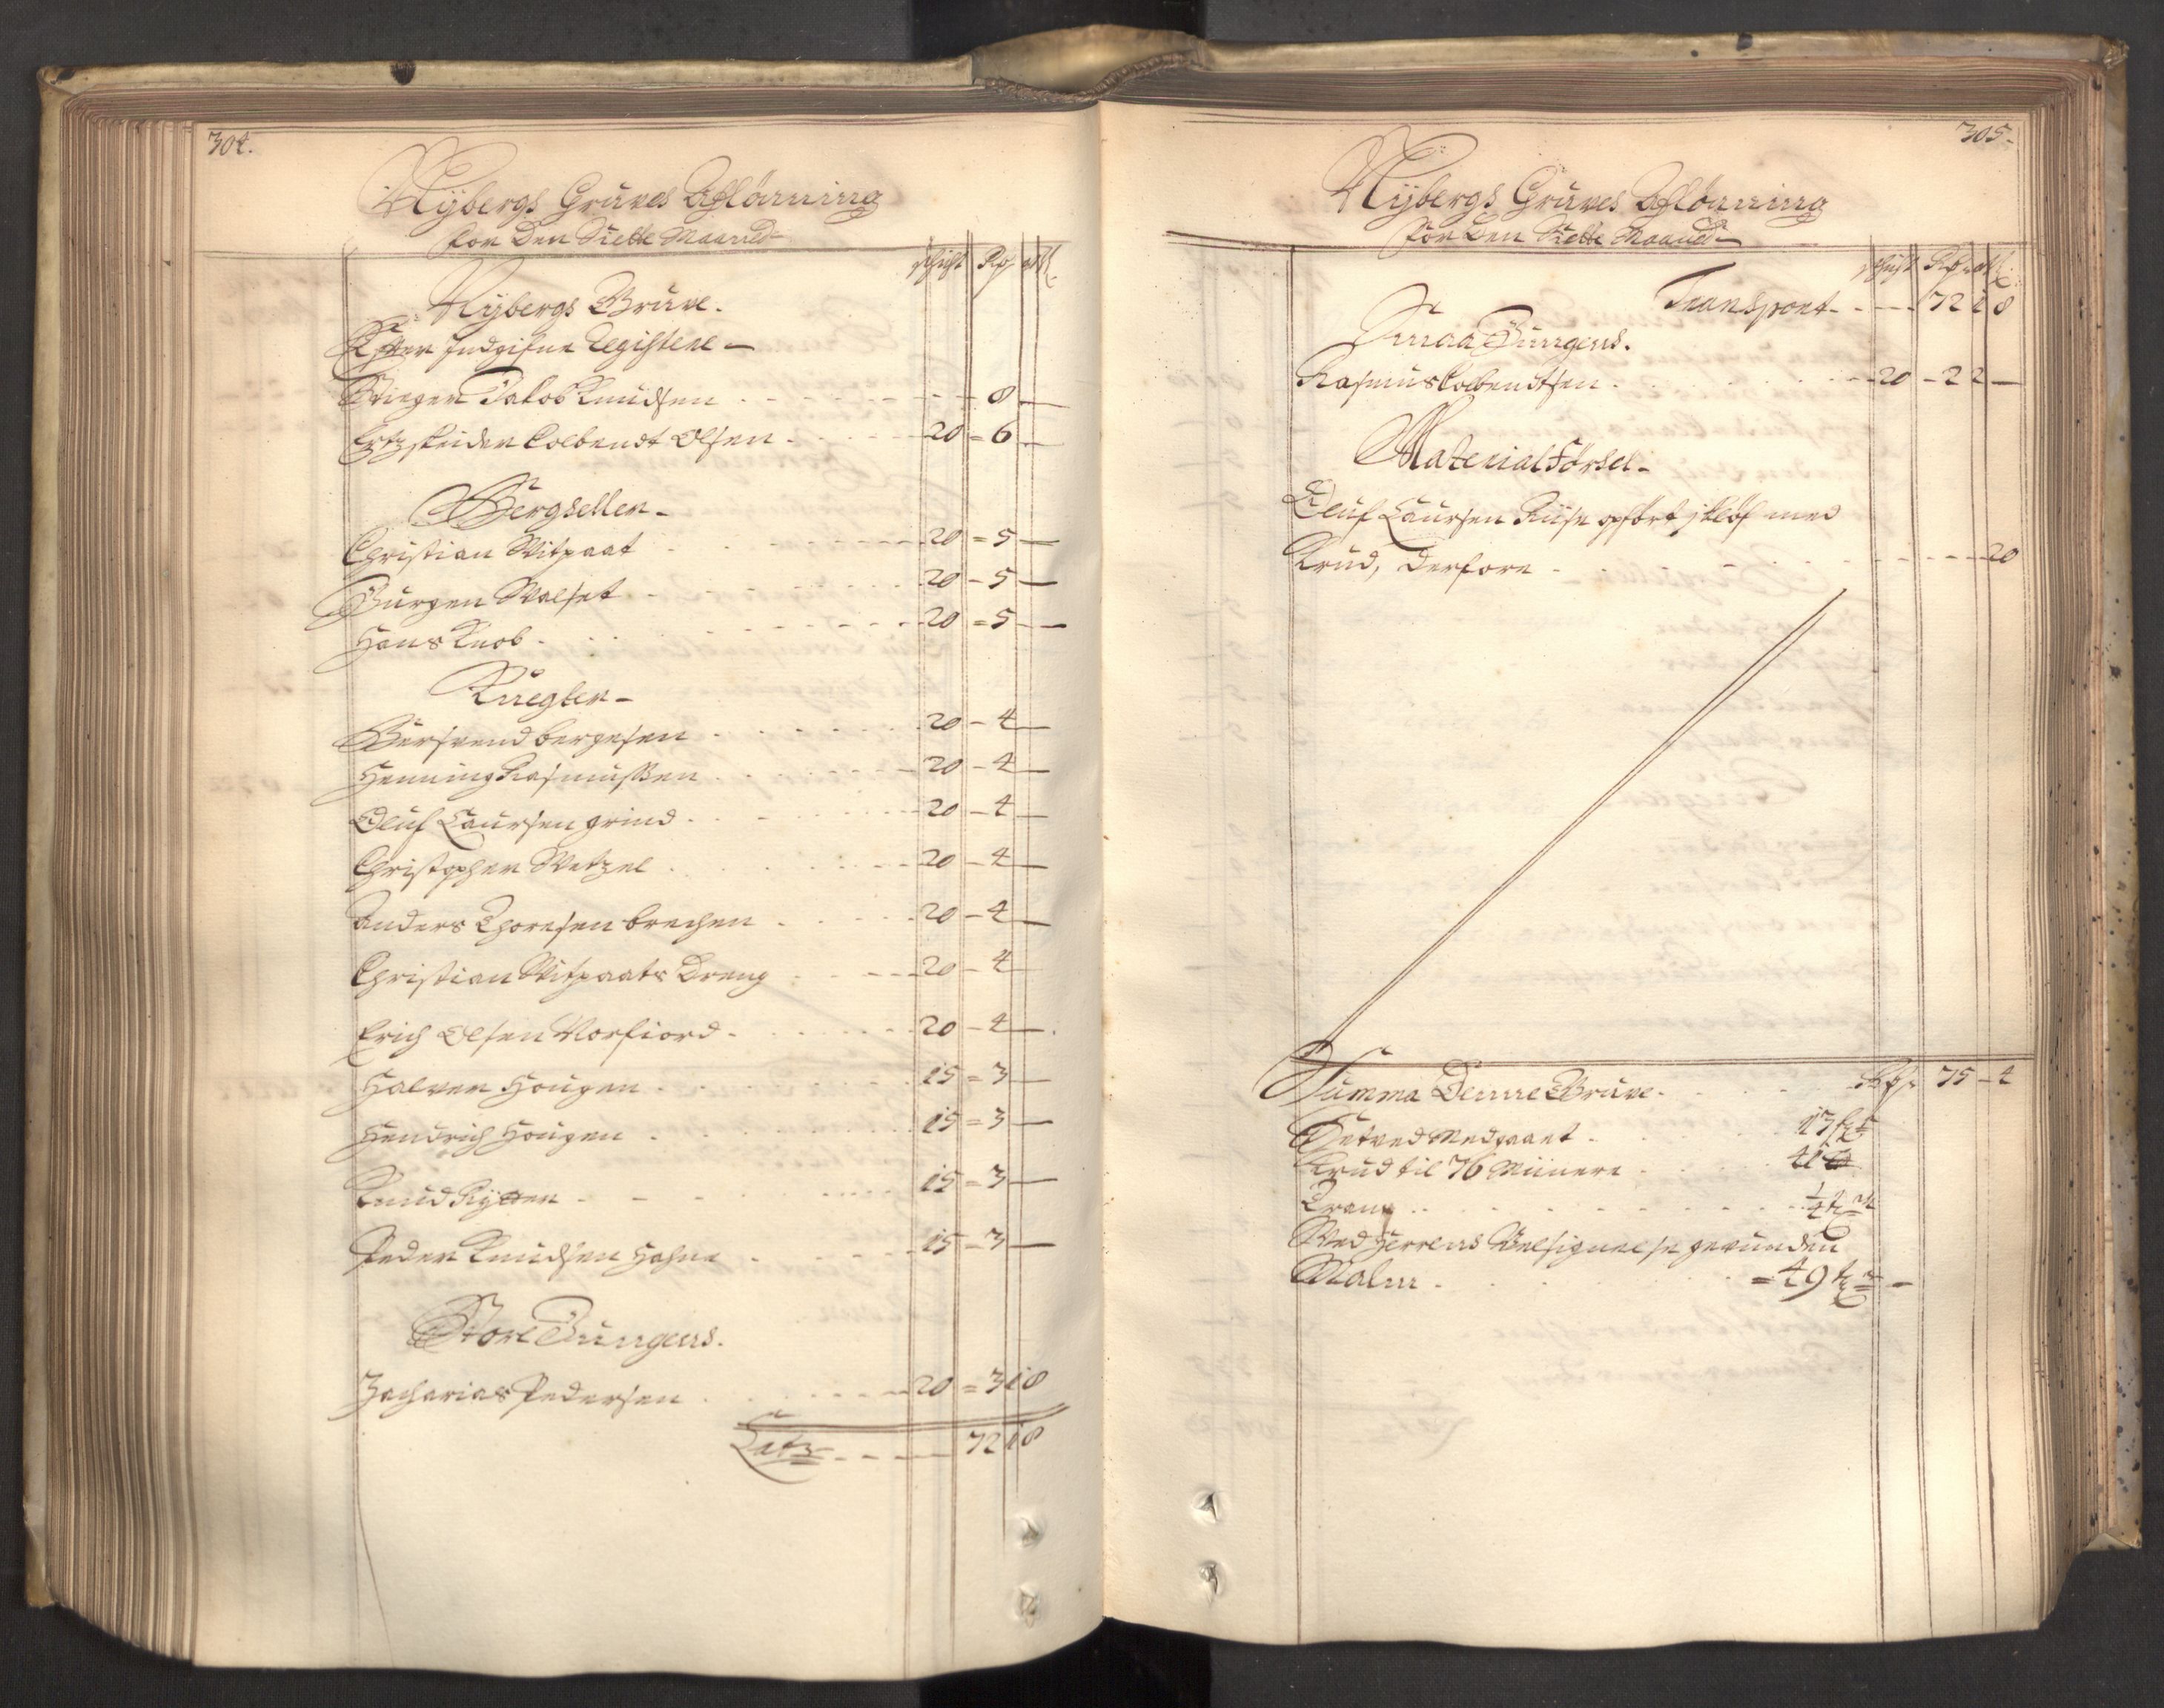 304.
Nÿbergs Gruves Aflönning
for Den Siette Maaned
schicht Rdr ort ß
Nÿbergs Gruve.
Efter Indgifne Registere
Stieger Jakob Knudsen - 8 -
Ertzskeider Colbendt Olsen 20 = 6 -
Bergseller
Christian Vitpaat 20 = 5 -
Jürgen Walset 20 - 5 -
Hans Knob 20 = 5 -
Knegter
Bersvend bergesen 20 - 4 -
Henning Rasmussen 20 - 4 -
Oluf Laursen grind 20 - 4 -
Christopher Wetzel 20 - 4 -
Anders Thoresen brechen 20 - 4 -
Christian Vitpaats Dreng 20 - 4
Erich Olsen Norfiord 20 - 4 -
Halvor Hougen 15 = 3 -
Hendrich Hougen 15 = 3 -
Knud Rytter 15 - 3 -
Peder Knudsen Hofne 15 - 3 -
Store Jungens.
Zacharias Pedersen 20 = 3 1 8
Latz 72 1 8
305.
Nÿbergs Gruves Aflönning
for Den Siette Maaned
schicht Rdr ort ß
Transport 72 1 8
Smaa Jungens.
Rasmus Colbendtsen 20 - 2 2 -
Material Försel
Oluf Laursen Riise opført j kløf med
Krud, derfore 20
Summa Denne Gruve Rdr 75 - 4
Setved Medgaaet 17
Krud til 76 Miinere 41
Trann 1/4
Ved Herrens Velsignelse gevunden
Malm = 49